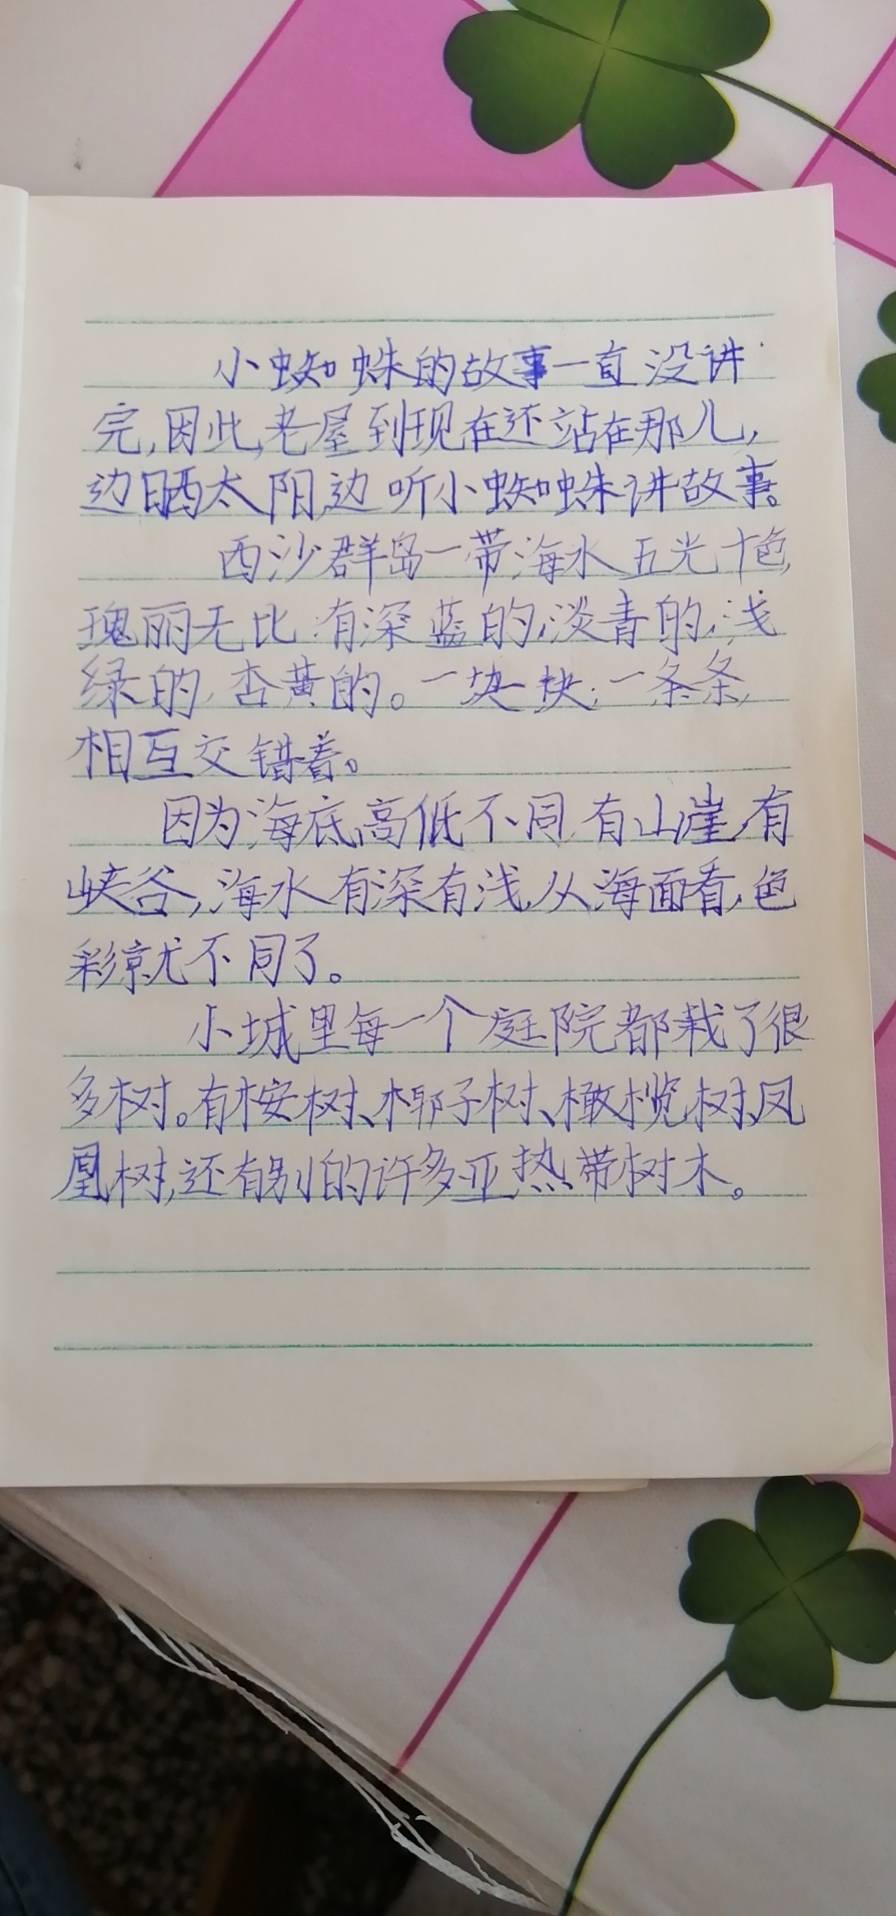 小蜘蛛的故事一直没讲
完,因此,老屋到现在还站在那儿,
边晒太阳,边听小蜘蛛讲故事。
西沙群岛一带海水五光十色,
瑰丽无比:有深蓝的,淡青的,浅
绿的,杏黄的。一块块,一条条,
相互交错着。
因为海底高低不同,有山崖,有
峡谷,海水有深有浅,从海面看,色
彩就不同了。
小城里每一个庭院都栽了很
多树。有桉树、椰子树、橄榄树、凤
凰树,还有别的许多亚热带树木。